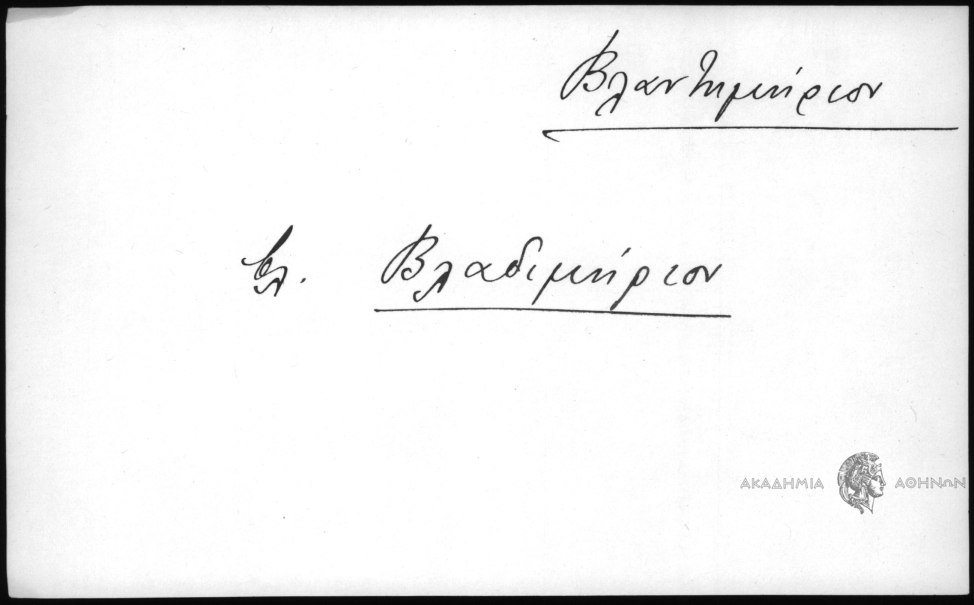 Βλαντημήριον
βλ. Βλαδιμήριον
ΑΚΑΔΗΜΙΑ ΑΘΗΝΩΝ